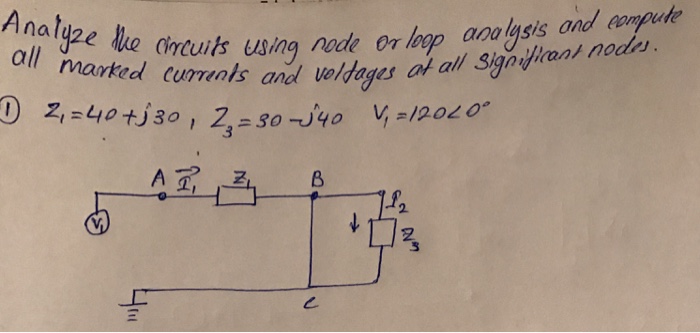 Analyze the circuits using node or loop analysis and compute
all marked currents and voltages at all significant nodes.
① Z₁=40+j30, Z₃=30-j40 V₁=120∠0°
A I₁ Z₁ B
I₂
V₁
Z₃
C